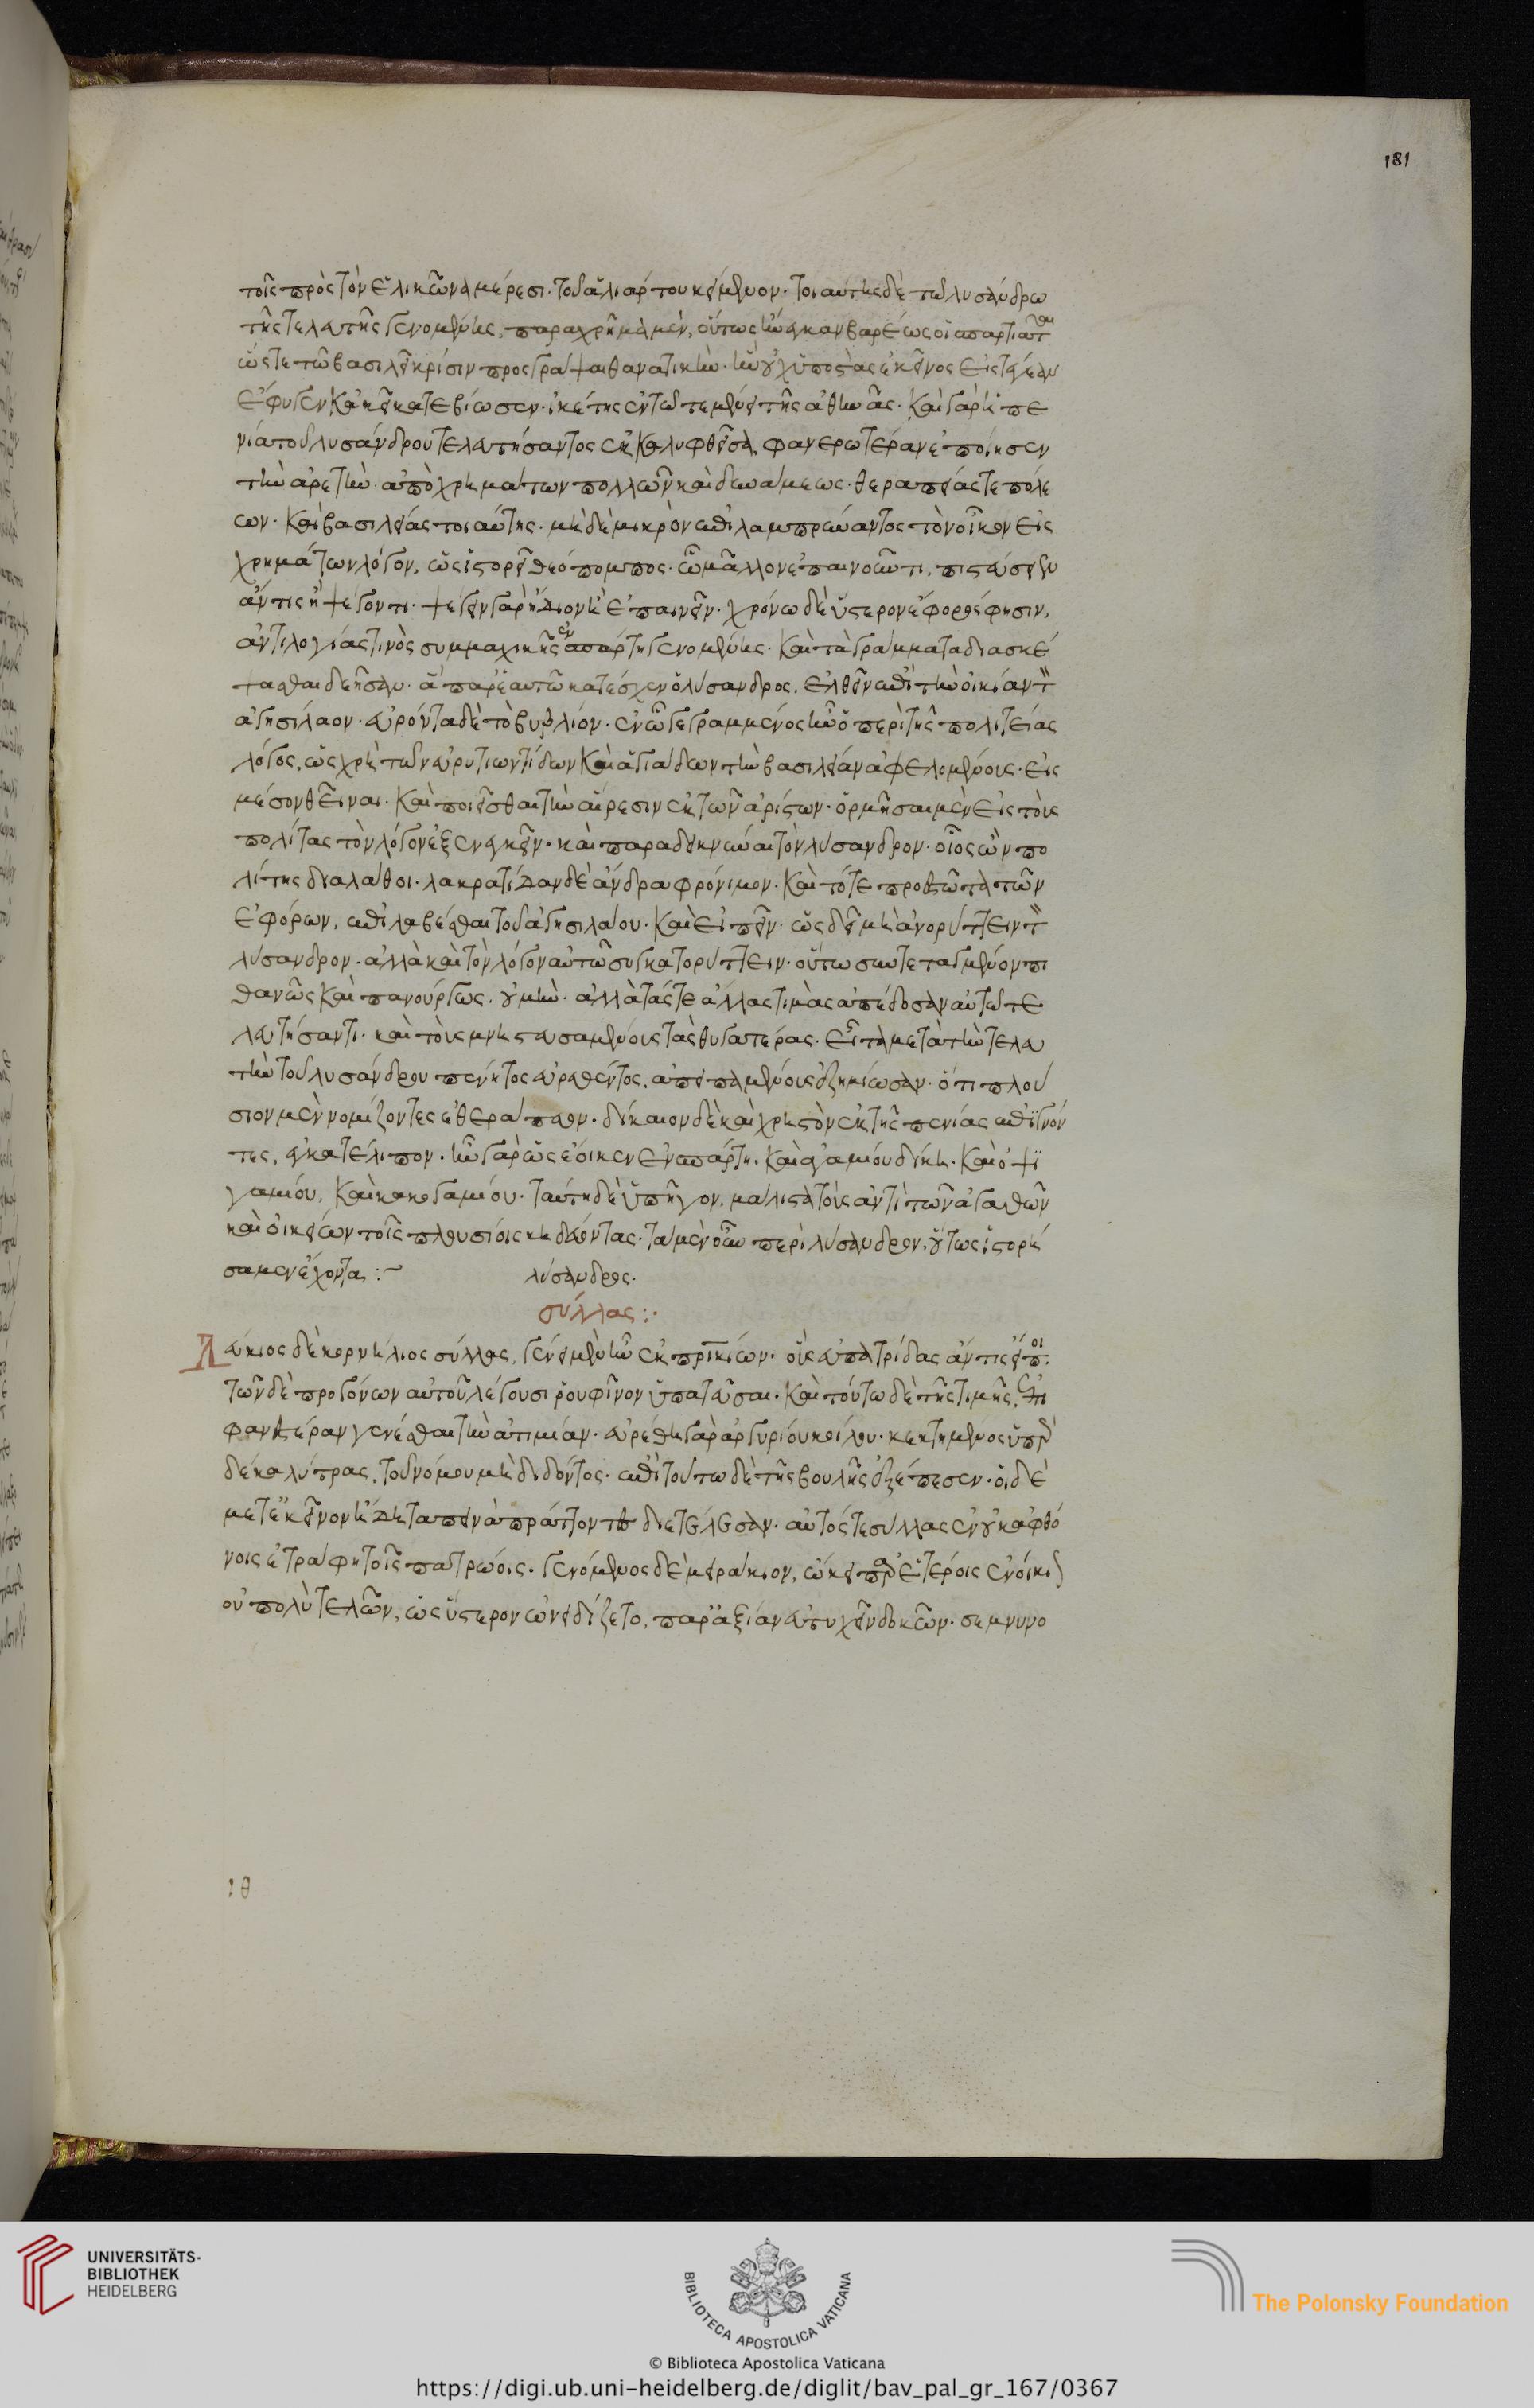 181
τοῖς πρὸς τὸν ἑλικῶνα μέρεσι τοῦ ἁλιάρτου κείμενον. τοιαύτης δὲ τῶ λυσάνδρω
τῆς τελευτῆς γενομένης, παραχρῆμα μὲν, οὕτως ἤνεγκαν βαρέως οἱ σπαρτιᾶται
ὥστε τῶ βασιλεῖ κρίσιν προσγράψαι θανατικήν. ἣν οὐχ ὑποστὰς ἐκεῖνος εἰς τεγέαν
ἔφυγεν κἀκεῖ κατεβίωσεν. ἱκέτης ἐν τῶ τεμένει τῆς ἀθηνᾶς. καὶ γὰρ ἡ πε
νία τοῦ λυσάνδρου τελευτήσαντος ἐκκαλυφθεῖσα, φανερωτέραν ἐποίησεν
τὴν ἀρετήν. ἀπὸ χρημάτων πολλῶν καὶ δυνάμεως. θεραπείας τε πόλε
ων. καὶ βασιλείας τοιαύτης. μηδὲ μικρὸν ἐπιλαμπρύναντος τὸν οἶκον εἰς
χρημάτων λόγον, ὡς ἱστορεῖ θεόπομπος. ᾧ μᾶλλον ἐπαινοῦντι, πιστεύσειεν
ἄν τις ἢ ψέγοντι. ψέγειν γὰρ ἥδιον ἢ ἐπαινεῖν. χρόνω δὲ ὕστερον ἔφορός φησιν,
ἀντιλογίας τινὸς συμμαχικῆς ἐν σπάρτη γενομένης. καὶ τὰ γράμματα διασκέ
ψασθαι δεῆσαν. ἃ παρ' ἑαυτῶ κατέσχεν ὁ λύσανδρος, ἐλθεῖν ἐπὶ τὴν οἰκίαν τὸν
ἀγησίλαον. εὑρόντα δὲ τὸ βυβλίον. ἐν ᾧ γεγραμμένος ἦν ὁ περὶ τῆς πολιτείας
λόγος, ὡς χρὴ τῶν εὐρυτιωντίδων καὶ ἀγιαδων τὴν βασιλείαν ἀφελομένους. εἰς
μέσον θεῖναι. καὶ ποιεῖσθαι τὴν αἵρεσιν ἐκ τῶν ἀρίστων. ὁρμῆσαι μὲν εἰς τοὺς
πολίτας τὸν λόγον ἐξενεγκεῖν. καὶ παραδεικνύναι τὸν λύσανδρον. οἷος ὢν πο
λίτης διαλάθοι. λακρατίδαν δὲ ἄνδρα φρόνιμον. καὶ τότε προεστῶτα τῶν
ἐφόρων, ἐπιλαβέσθαι τοῦ ἀγησιλάου. καὶ εἰπεῖν. ὡς δεῖ μὴ ἀνορύττειν τὸν
λύσανδρον. ἀλλὰ καὶ τὸν λόγον αὐτῶ συγκατορύττειν. οὕτω συντεταγμένον πι
θανῶς καὶ πανούργως. οὐ μὴν. ἀλλὰ τάς τε ἄλλας τιμὰς ἀπέδοσαν αὐτῶ τε
λευτήσαντι. καὶ τοὺς μνηστευσαμένους τὰς θυγατέρας. εἶτα μετὰ τὴν τελευ
τὴν τοῦ λυσάνδρου πένητος εὑρεθέντος, ἀπειπαμένους ἐζημίωσαν. ὅτι πλού
σιον μὲν νομίζοντες ἐθεράπευον. δίκαιον δὲ καὶ χρηστὸν ἐκ τῆς πενίας ἐπιγνόν
τες, ἐγκατέλιπον. ἦν γὰρ ὡς ἔοικεν ἐν σπάρτη, καὶ ἀγαμίου δίκη. καὶ ὀψι
γαμίου, καὶ κακογαμίου. ταύτη δὲ ὑπῆγον, μάλιστα τοὺς ἀντὶ τῶν ἀγαθῶν
καὶ οἰκείων τοῖς πλουσίοις κηδεύοντας. τὰ μὲν οὖν περὶ λύσανδρον, οὕτως ἱστορή
σαμεν ἔχοντα :~ λύσανδρος.
σύλλας :.
Λεύκιος δὲ κορνήλιος σύλλας, γένει μὲν ἦν ἐκ πατρικίων. οὓς εὐπατρίδας ἄν τις εἴποι.
τῶν δὲ προγόνων αὐτοῦ λέγουσι ῥουφῖνον ὑπατεῦσαι. καὶ τούτω δὲ τῆς τιμῆς, ἐπι
φανεστέραν γενέσθαι τὴν ἀτιμίαν. εὑρέθη γὰρ ἀργυρίου κοίλου. κεκτημένος ὑπὲρ
δέκα λύτρας, τοῦ νόμου μὴ διδόντος. ἐπὶ τούτω δὲ τῆς βουλῆς ἐξέπεσεν. οἱ δὲ
μετ' ἐκεῖνον ἤδη ταπεινὰ πράττοντες διετέλεσαν. αὐτός τε σύλλας ἐν οὐκ ἀφθό
νοις ἐτράφη τοῖς πατρώοις. γενόμενος δὲ μειράκιον, ᾤκει παρ' ἑτέροις ἐνοίκι
ου πολὺ τελῶν, ὡς ὕστερον ὠνειδίζετο, παρ' ἀξίαν εὐτυχεῖν δοκῶν. σεμνυνο
ιθ
UNIVERSITÄTS-
BIBLIOTHEK
HEIDELBERG
BIBLIOTECA APOSTOLICA VATICANA
The Polonsky Foundation
© Biblioteca Apostolica Vaticana
https://digi.ub.uni-heidelberg.de/diglit/bav_pal_gr_167/0367